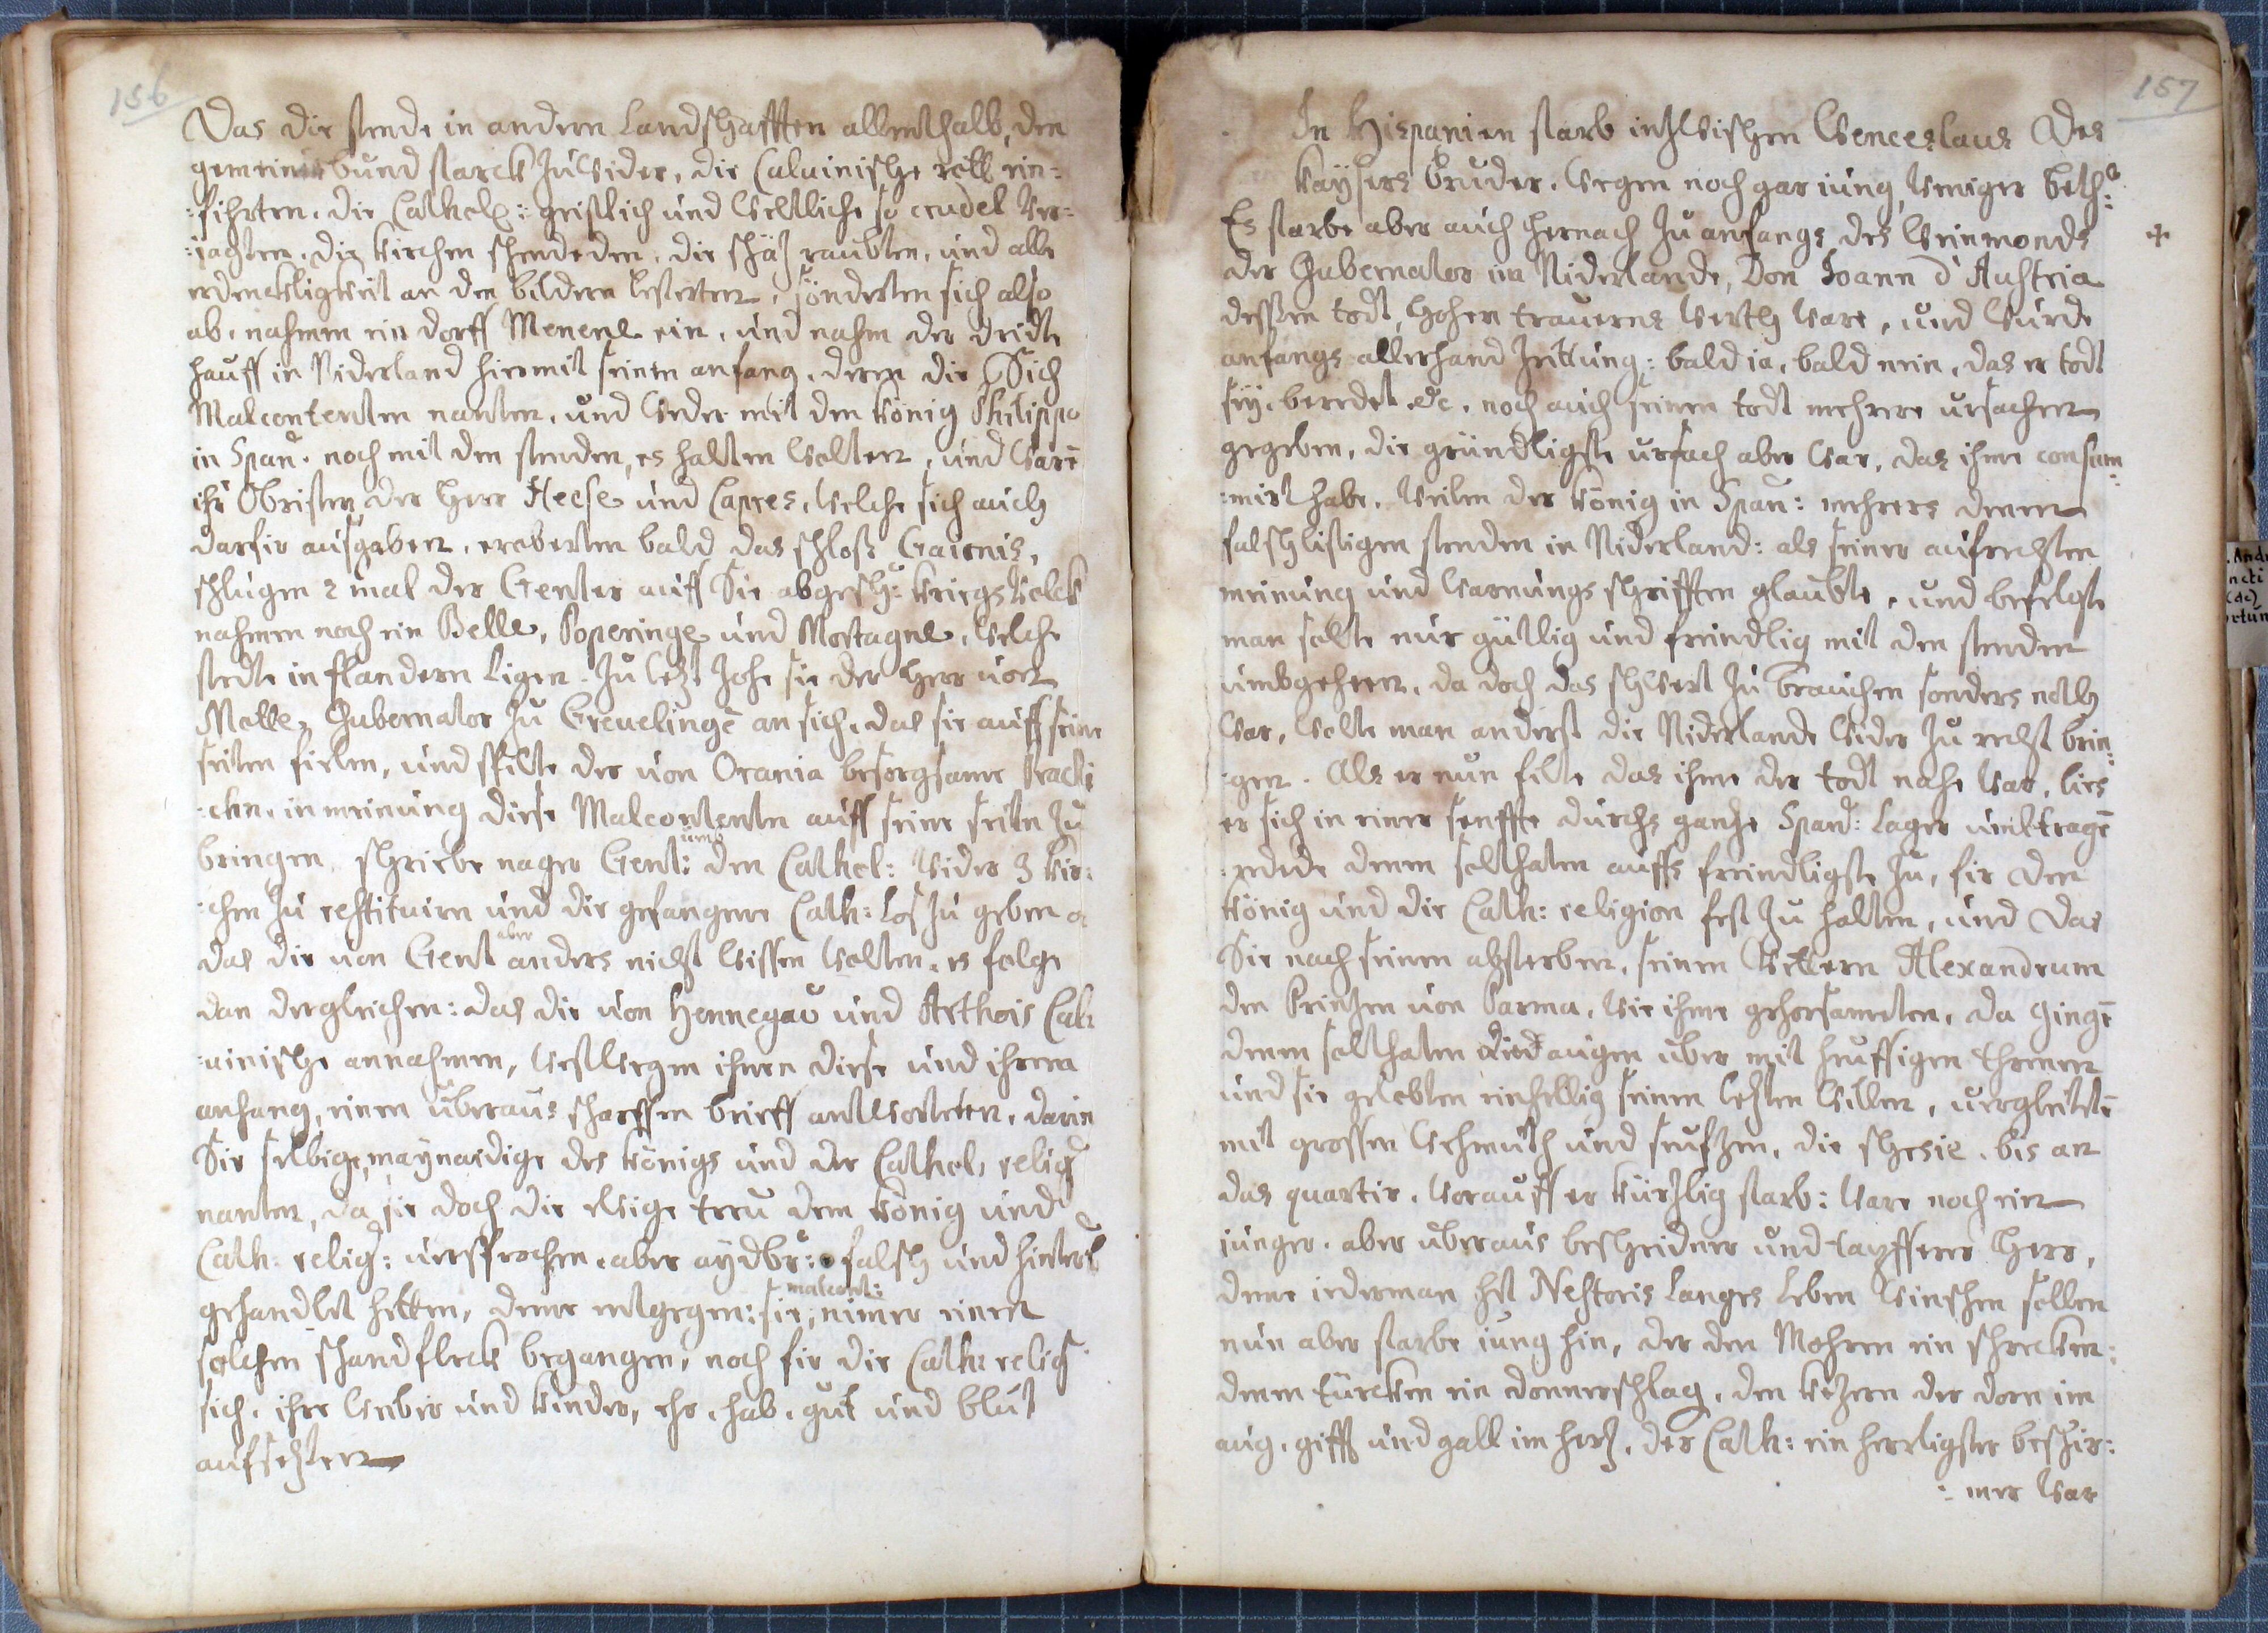 156
Das die stende in andern Landschafften allenthalb, den
gemeinen bund starck zuwider, die Caluinische rott ein:
:fihrten. die Cathol: geistlich und weltliche so crudel ver:
:jagten, die kirchen schendeden, die schäz raubten, und alle
erdenckligkeit an den bildern lesterten, sönderten sich also
ab. nahmen ein dorff Menene ein, und nahm der dridte
hauff in Niderland hiermit seinen anfang. deren die Sich
Malcontenten nanten, und weder mit den König Philippo
in Span: noch mit den stenden, es halten wolten, und warē
ihr Obristen der Herr Heese und Capres, welche sich auch
darfir ausgaben, eroberten bald das schloss Gairnis,
schlugen 2 mal der Genter auff Sie abgesch: kriegs volck
nahmen noch ein Belle, Poperinge und Mortagne, welche
stedte in flandern ligen. zu letzt zohe sie der Herr von
Motte, Gubernator zu Greuelingē an sich, das sie auff seine
seiten fielen, und spilte der von Orania besorgsame Practi
:ckn. in meinung diese Malcontenten auff seine seiten zu
bringen, schriebe nager Gent: umb den Cathol: wider 3 kir:
:chen zu restituirn und die gefangene Cath: los zu geben
das die von Gent aber anders nicht wissen wolten, es folge
dan dergleichen: das die von Hennegau und Arthois Cal:
:uinische annahmen, westwegen ihnen diese und ihrem
anhang, einen überaus scharffen brieff antworteten, darin
Sie selbige, maynaidige des königs und der Cathol: relig:
nanten, da sie doch die ewige treu dem könig und
Cath: relig: versprochen. aber aydbr: falsch und hinterl
gehandlet hetten, deme entgegen: sie, malcont: nimer einen
solchen schandfleck begangen, noch fir die Cath: relig:
sich, ihre weiber und kinder, ehr, hab, gut und blut
aufsetzten
157
In Hispanien starb inzwischen Wenceslaus des
kaysers bruder. wegen noch gar iung, weniger beth:
Es starbe aber auch hernach zu anfangs des Weinmonds +
der Gubernator im Niderlande, Don Joann d'Austria
dessen todt, hohen trauerns werth ware, und wurde
anfangs allerhand Zeittung: bald ia, bald nein, das er todt
sey, beredet &c. noch auch seinen todt mehrere ursachen
gegeben, die gründligste ursach aber war, das ihne consum
:mirt habe, weilen der könig in Span: mehrers denen
falschlistigen stenden in Niderland: als seiner aufrechten
meinung und warnungs schrifften glaubte, und befelgte
man solte nur güttlig und freindlig mit den stenden
umbgehen, da doch das schwert zu brauchen sonders noth
war, wolte man anderst die Niderlande wider zu recht brin:
:gen. Als er nun filte das ihme der todt nahe war, lies
er sich in einer senffte durchs gantze Span: Lager umbtragē
:redede denen solthaten auffs freindligste zu, fir den
könig und die Cath: religion fest zu halten, und das
Sie nach seinen absterben, seinen Vettern Alexandrum
den Printzen von Parma, wie ihme gehorsameten, da gingē
denen solthaten die augen uber mit heuffigen threnen
und sie gelobten einhellig seinen letzten willen, vergleitetē
mit grossen wehmuth und seufzen, die schesie, bis an
das quartir, worauff er kürtzlig starb: ware noch ein
junger, aber uberaus bescheidner und tapfferer Herr,
deme iederman het Nestoris langes leben winschen sollen
nun aber starbe iung hin, der den Mohren ein schrecken:
denen türcken ein donnerschlag, den ketzern der dorn im
aug, gifft und gall im hertz, der Cath: ein herrligster beschir:
: mer war